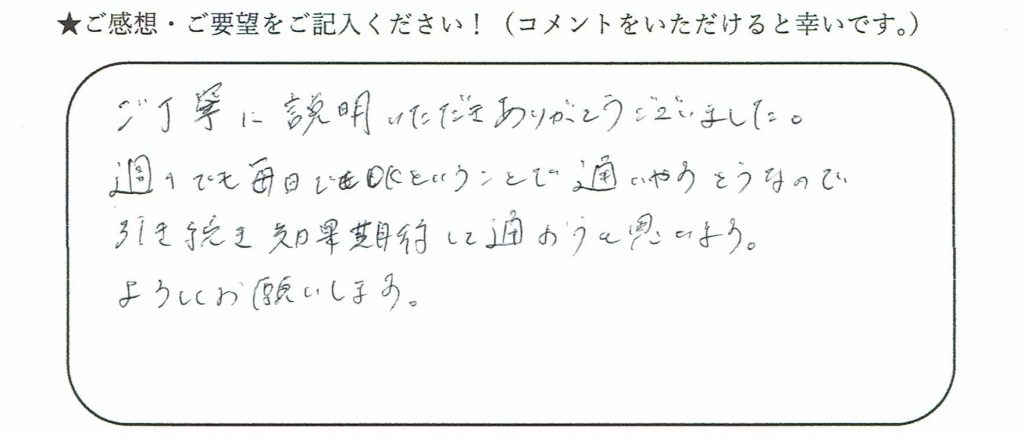 ★ご感想・ご要望をご記入ください！（コメントをいただけると幸いです。）
ご丁寧に説明いただきありがとうございました。
週1でも毎日でもOKということで通いやすそうなので
引き続き効果期待して通おうと思います。
よろしくお願いします。